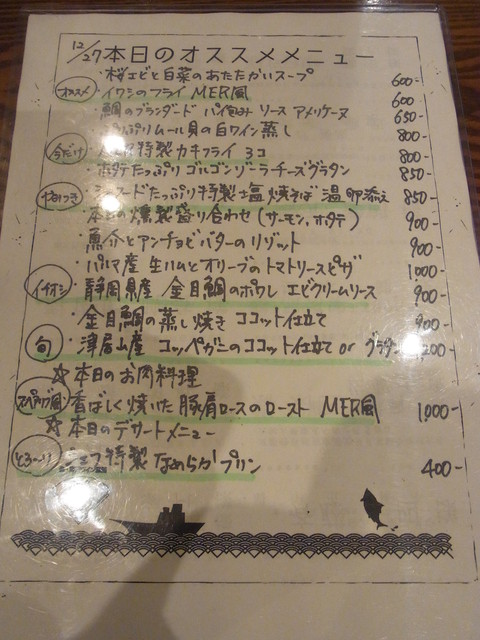 12/27 本日のオススメメニュー
・桜エビと白菜のあたたかいスープ 600-
オススメ ・イワシのフライ MER風 600
・鯛のブランダード パイ包み ソース アメリケーヌ 650-
っぷりムール貝の白ワイン蒸し 800-
今だけ 特製カキフライ 3コ 800-
・ホタテたっぷりゴルゴンゾーラチーズグラタン 850-
フードたっぷり特製塩焼そば 温卵添え 850-
・本日の燻製盛り合わせ(サーモン、ホタテ) 900-
・魚介とアンチョビバターのリゾット 900-
・パルマ産 生ハムとオリーブのトマトソースピザ 1,000-
イチオシ ・静岡県産 金目鯛のポワレ エビクリームソース 900-
・金目鯛の蒸し焼き ココット仕立て 900-
旬 ・津居山産 コッペガニのココット仕立て or グラタン 200-
☆本日のお肉料理
スペアリブ風 香ばしく焼いた 豚肩ロースのロースト MER風 1,000-
☆本日のデザートメニュー
とろ〜り シェフ特製 なめらかプリン 400-